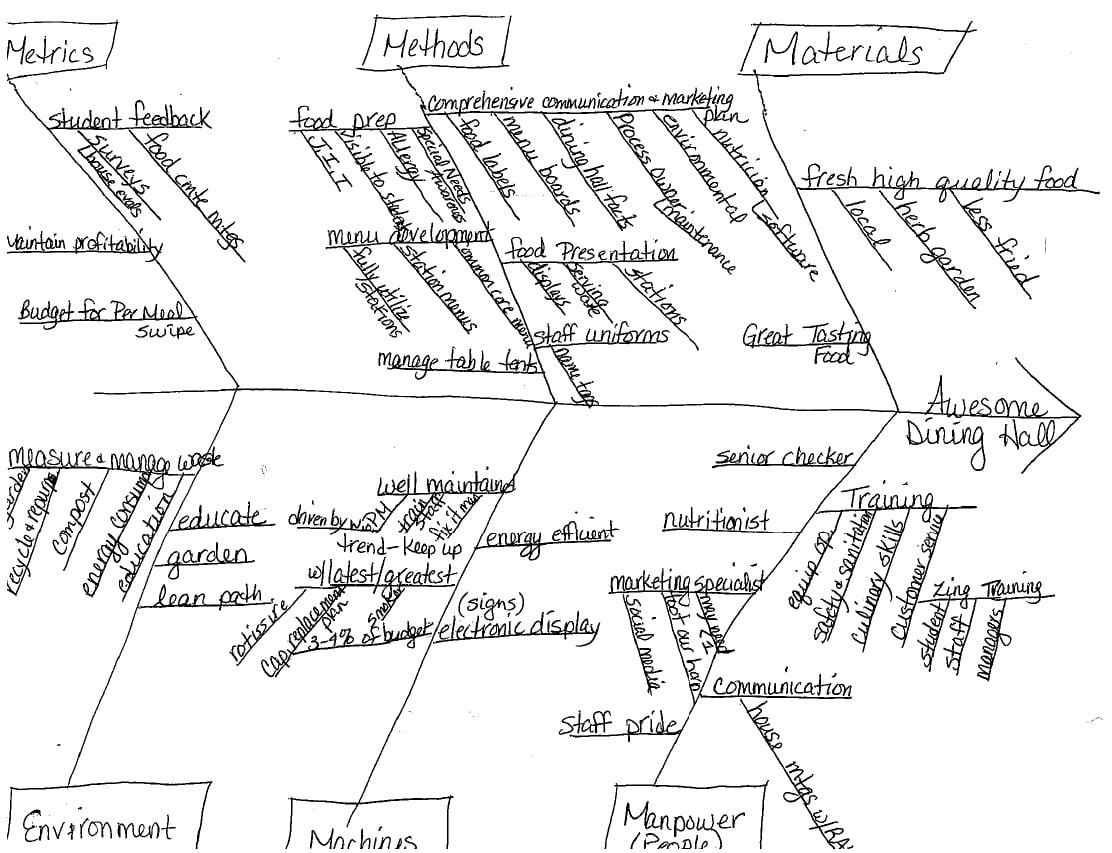 Metrics
Methods
Materials
student feedback
surveys
house evals
food cmte mtgs
Maintain profitability
Budget for Per Meal
swipe
food prep
J.I.T
Visible to students
Allergy
Special Needs
Awareness
menu development
fully utilize
stations
station menus
common core menu
manage table tents
comprehensive communication & marketing
plan
food labels
menu boards
dining hall facts
Process owner
maintenance
environmental
nutrition
software
food Presentation
displays
serving
ware
stations
staff uniforms
name tags
fresh high quality food
local
herb garden
less fried
Great Tasting
Food
Awesome
Dining Hall
measure & manage waste
garden
recycle & repurp
compost
energy consump
education
educate
garden
lean path
well maintained
driven by
PM
train
staff
fix it man
trend-keep up
w/latest/greatest
rotissure
replacement
plan
smoker
3-4% of budget
energy efficient
(signs)
electronic display
senior checker
nutritionist
marketing specialist
social media
toot our horn
may need
staff pride
communication
house mtgs w/RA
Training
equip op.
safety & sanitation
culinary skills
customer service
Zing Training
student
staff
managers
Environment
Machines
Manpower
(People)